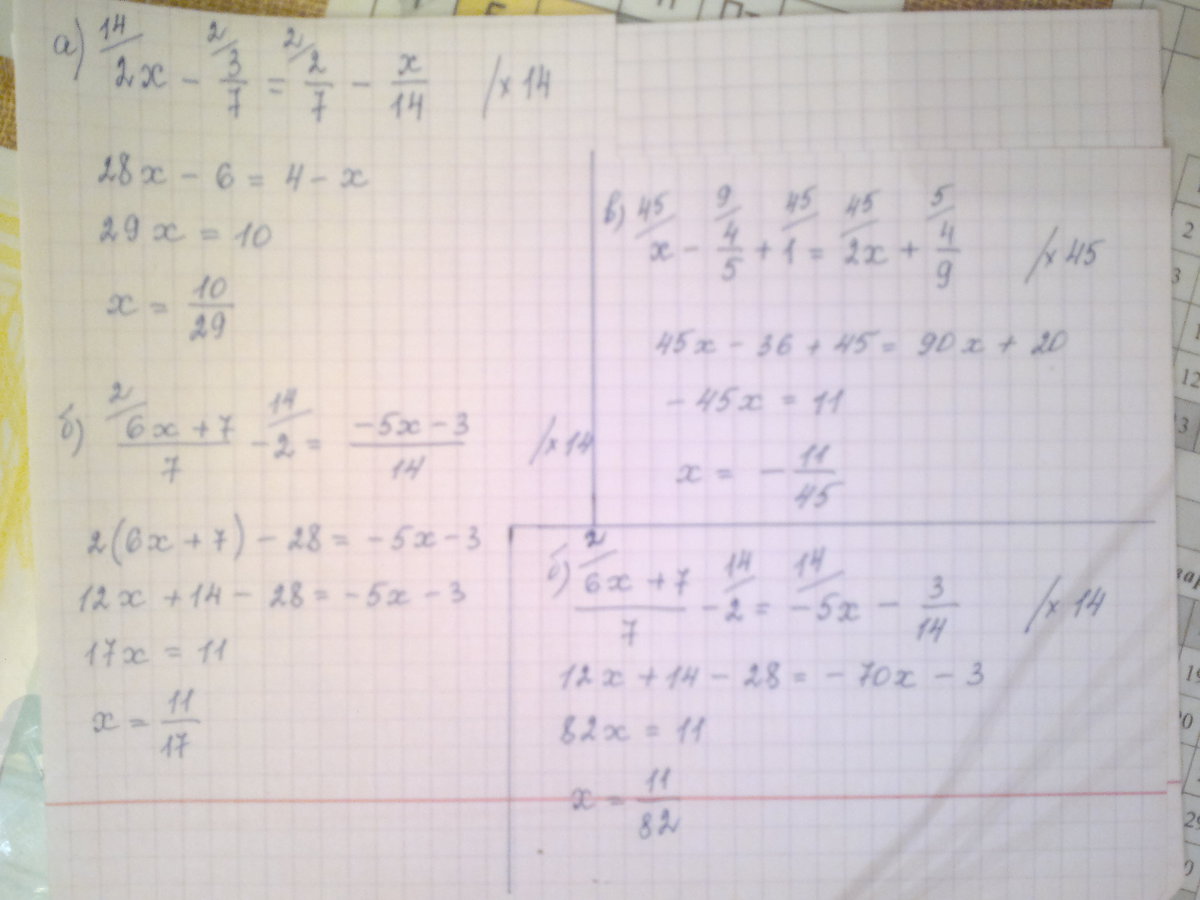 а) 14/ 2x - 2/ 3/7 = 2/ 2/7 - x/14 /×14
28x - 6 = 4 - x
29x = 10
x = 10/29
б) 2/ (6x + 7)/7 - 14/ 2 = (-5x - 3)/14 /×14
2(6x + 7) - 28 = -5x - 3
12x + 14 - 28 = -5x - 3
17x = 11
x = 11/17
в) 45/ x - 9/ 4/5 + 45/ 1 = 45/ 2x + 5/ 4/9 /×45
45x - 36 + 45 = 90x + 20
-45x = 11
x = - 11/45
б) 2/ (6x + 7)/7 - 14/ 2 = 14/ -5x - 3/14 /×14
12x + 14 - 28 = -70x - 3
82x = 11
x = 11/82
2
3
12
13
19
20
29